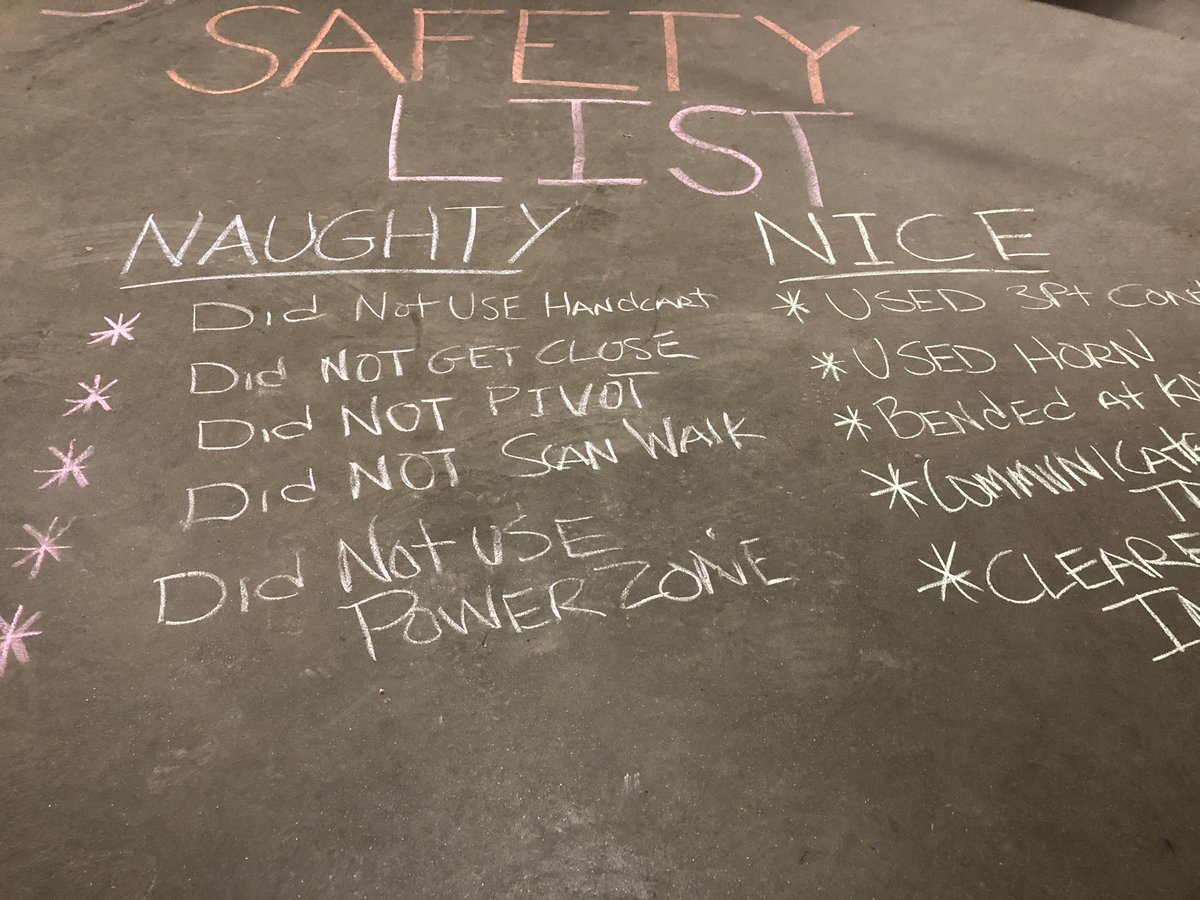 SAFETY
LIST
NAUGHTY
* Did Not USE Handcart
* Did NOT GET CLOSE
* Did NOT PIVOT
* Did NOT SCAN WALK
* Did Not USE
POWER ZONE
NICE
* USED 3Pt
* USED HORN
* BENDED at
*
*